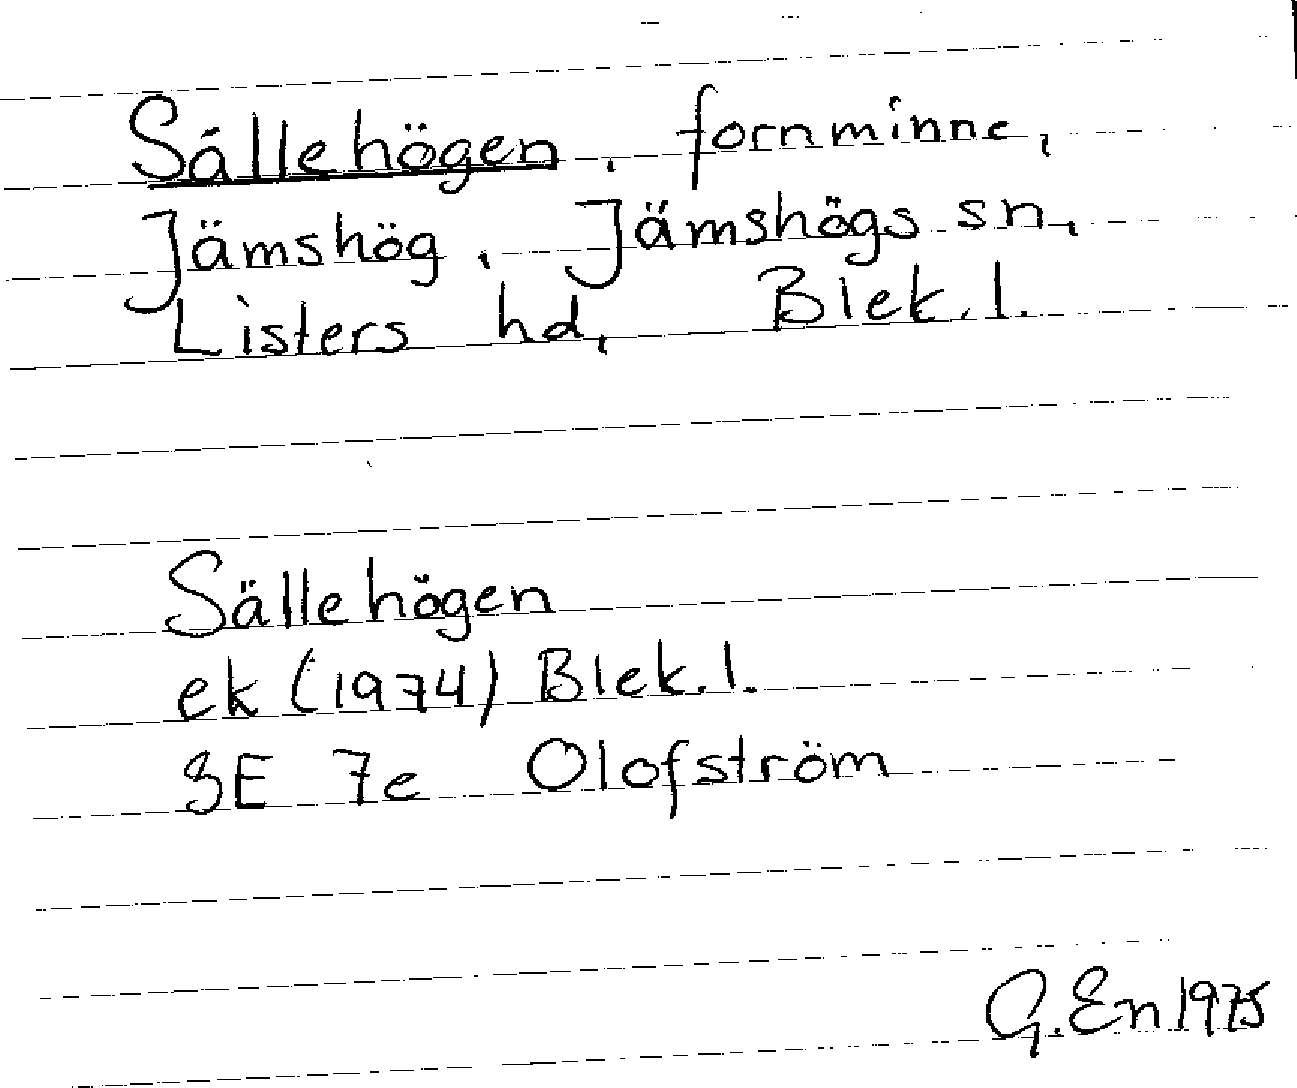 Sällehögen, fornminne,
Jämshög, Jämshögs sn,
Listers hd, Blek. l.
Sällehögen
ek (1974) Blek. l.
3E 7e Olofström
G. En 1975